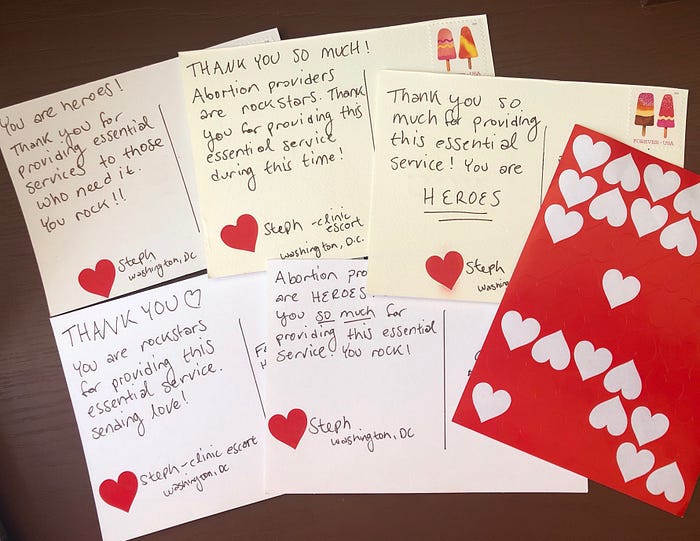 You are heroes!
Thank you for
providing essential
services to those
who need it.
You rock!!
Steph
Washington, DC
THANK YOU SO MUCH!
Abortion providers
are rockstars. Thank
you for providing this
essential service
during this time!
Steph - clinic
escort
Washington, D.C.
Thank you so
much for providing
this essential
service! You are
HEROES
Steph
FOREVER USA
THANK YOU♡
You are rockstars
for providing this
essential service.
Sending love!
Steph - clinic escort
Washington, DC
Abortion pro
are HEROES.
you so much for
providing this essential
service! You rock!
Steph
Washington, DC